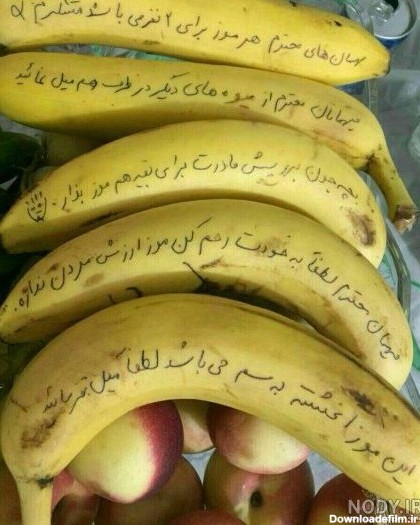 مهمان های محترم هر موز برای ۲ نفر می باشد متشکرم
میهمانان محترم از میوه های دیگر در ظرف هم میل نمائید
بچه جون برو پیش مادرت برای بقیه هم موز بذار.
میهمان محترم لطفاً به خودت رحم کن موز ارزش مردن نداره.
این موز آغشته به سم می باشد لطفاً میل نفرمائید
NODY.IR
Downloadefilm.ir